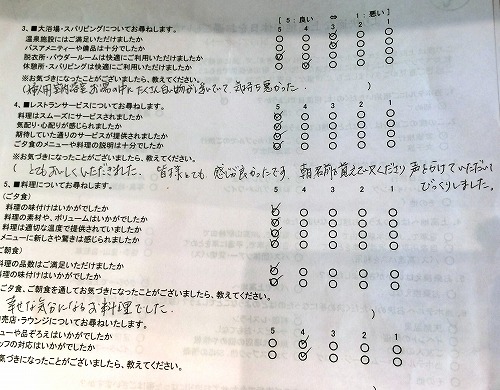 [ 5 : 良い ⇔ 1 : 悪い ]
3、■大浴場・スパリビングについてお尋ねします。 5 4 3 2 1
温泉施設にはご満足いただけましたか
バスアメニティーや備品は十分でしたか
脱衣所・パウダールームは快適にご利用いただけましたか
休憩所・スパリビングは快適にご利用いただけましたか
※お気づきになったことがございましたら、教えてください。
4、■レストランサービスについてお尋ねします。 5 4 3 2 1
料理はスムーズにサービスされましたか
気配り・心配りが感じられましたか
期待していた通りのサービスが提供されましたか
ご夕食のメニューや料理の説明は十分でしたか
※お気づきになったことがございましたら、教えてください。
(とてもおいしくいただきました。皆様とても感じが良かったです。
びっくりしました。)
5、■料理についてお尋ねします。 5 4 3 2 1
(ご夕食)
料理の味付けはいかがでしたか
料理の素材や、ボリュームはいかがでしたか
料理は適切な温度で提供されていましたか
メニューに新しさや驚きは感じられましたか
ご朝食)
料理の品数はご満足いただけましたか
料理の味付けはいかがでしたか
ご夕食、ご朝食を通してお気づきになったことがございましたら、教えてください。
幸せな気分になるお料理でした。 )
売店・ラウンジについてお尋ねいたします。 5 4 3 2 1
ューや品ぞろえはいかがでしたか
ッフの対応はいかがでしたか
気づきになったことがございましたら、教えてください。